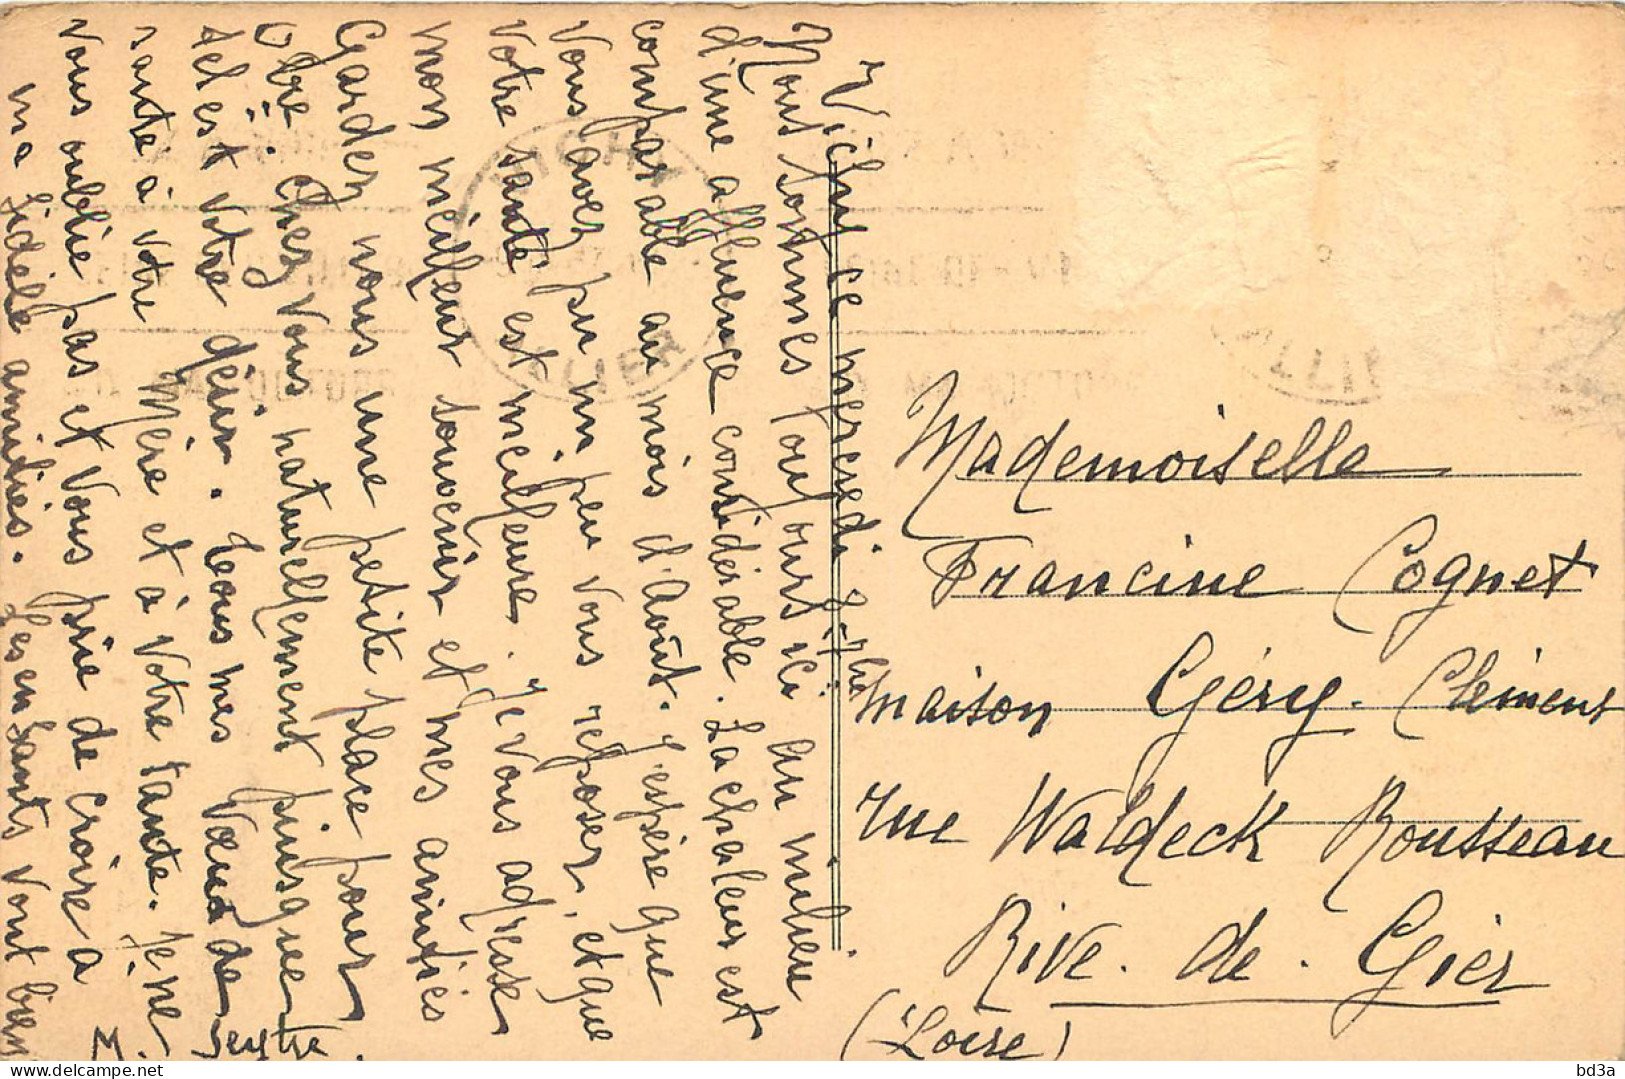 Vichy ce mercredi
Nous sommes toujours ici au milieu
d'une affluence considérable. La chaleur est
comparable au mois d'Août. J'espère que
vous avez pu un peu vous reposer, et que
votre santé est meilleure. Je vous adresse
mon meilleur souvenir et mes amitiés
Gardez nous une petite place pour
chez vous naturellement puisque
tel est votre désir. Tous mes vœux de
santé à votre Mère et à votre tante. Je ne
vous oublie pas et vous prie de croire à
ma fidèle amitiés. Les enfants vont bien
M.
Mademoiselle
Francine Cognet
maison Géry-Clément
rue Waldeck Rousseau
Rive-de-Gier
(Loire)
VICHY
ALLIER
bd3a